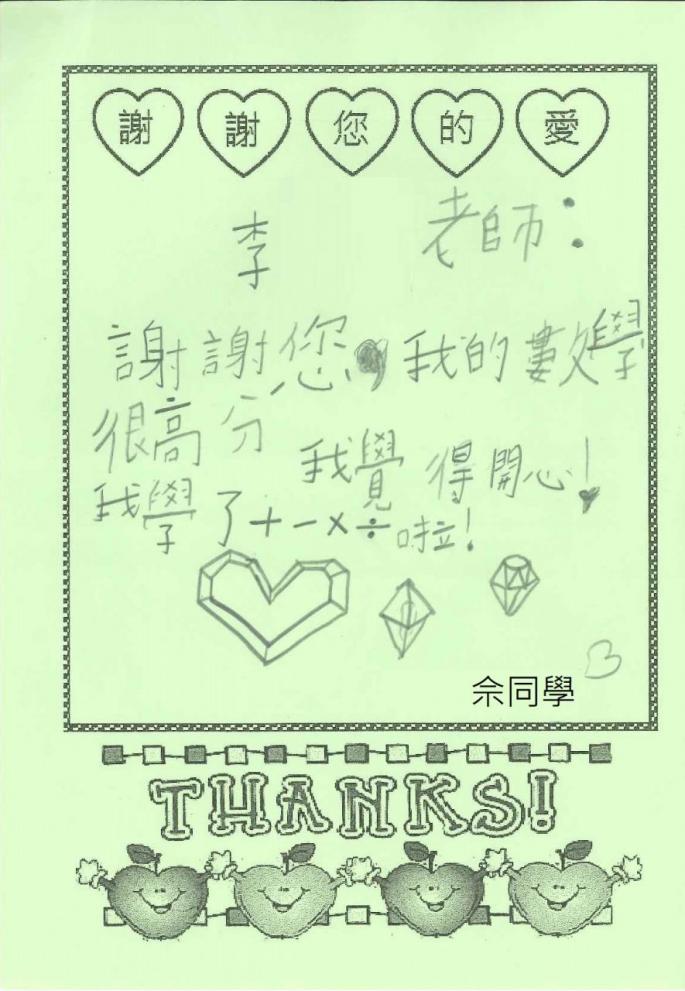 謝謝您的愛
李 老師：
謝謝您，我的數學
很高分 我覺得開心！
我學了+-×÷啦！
佘同學
THANKS!